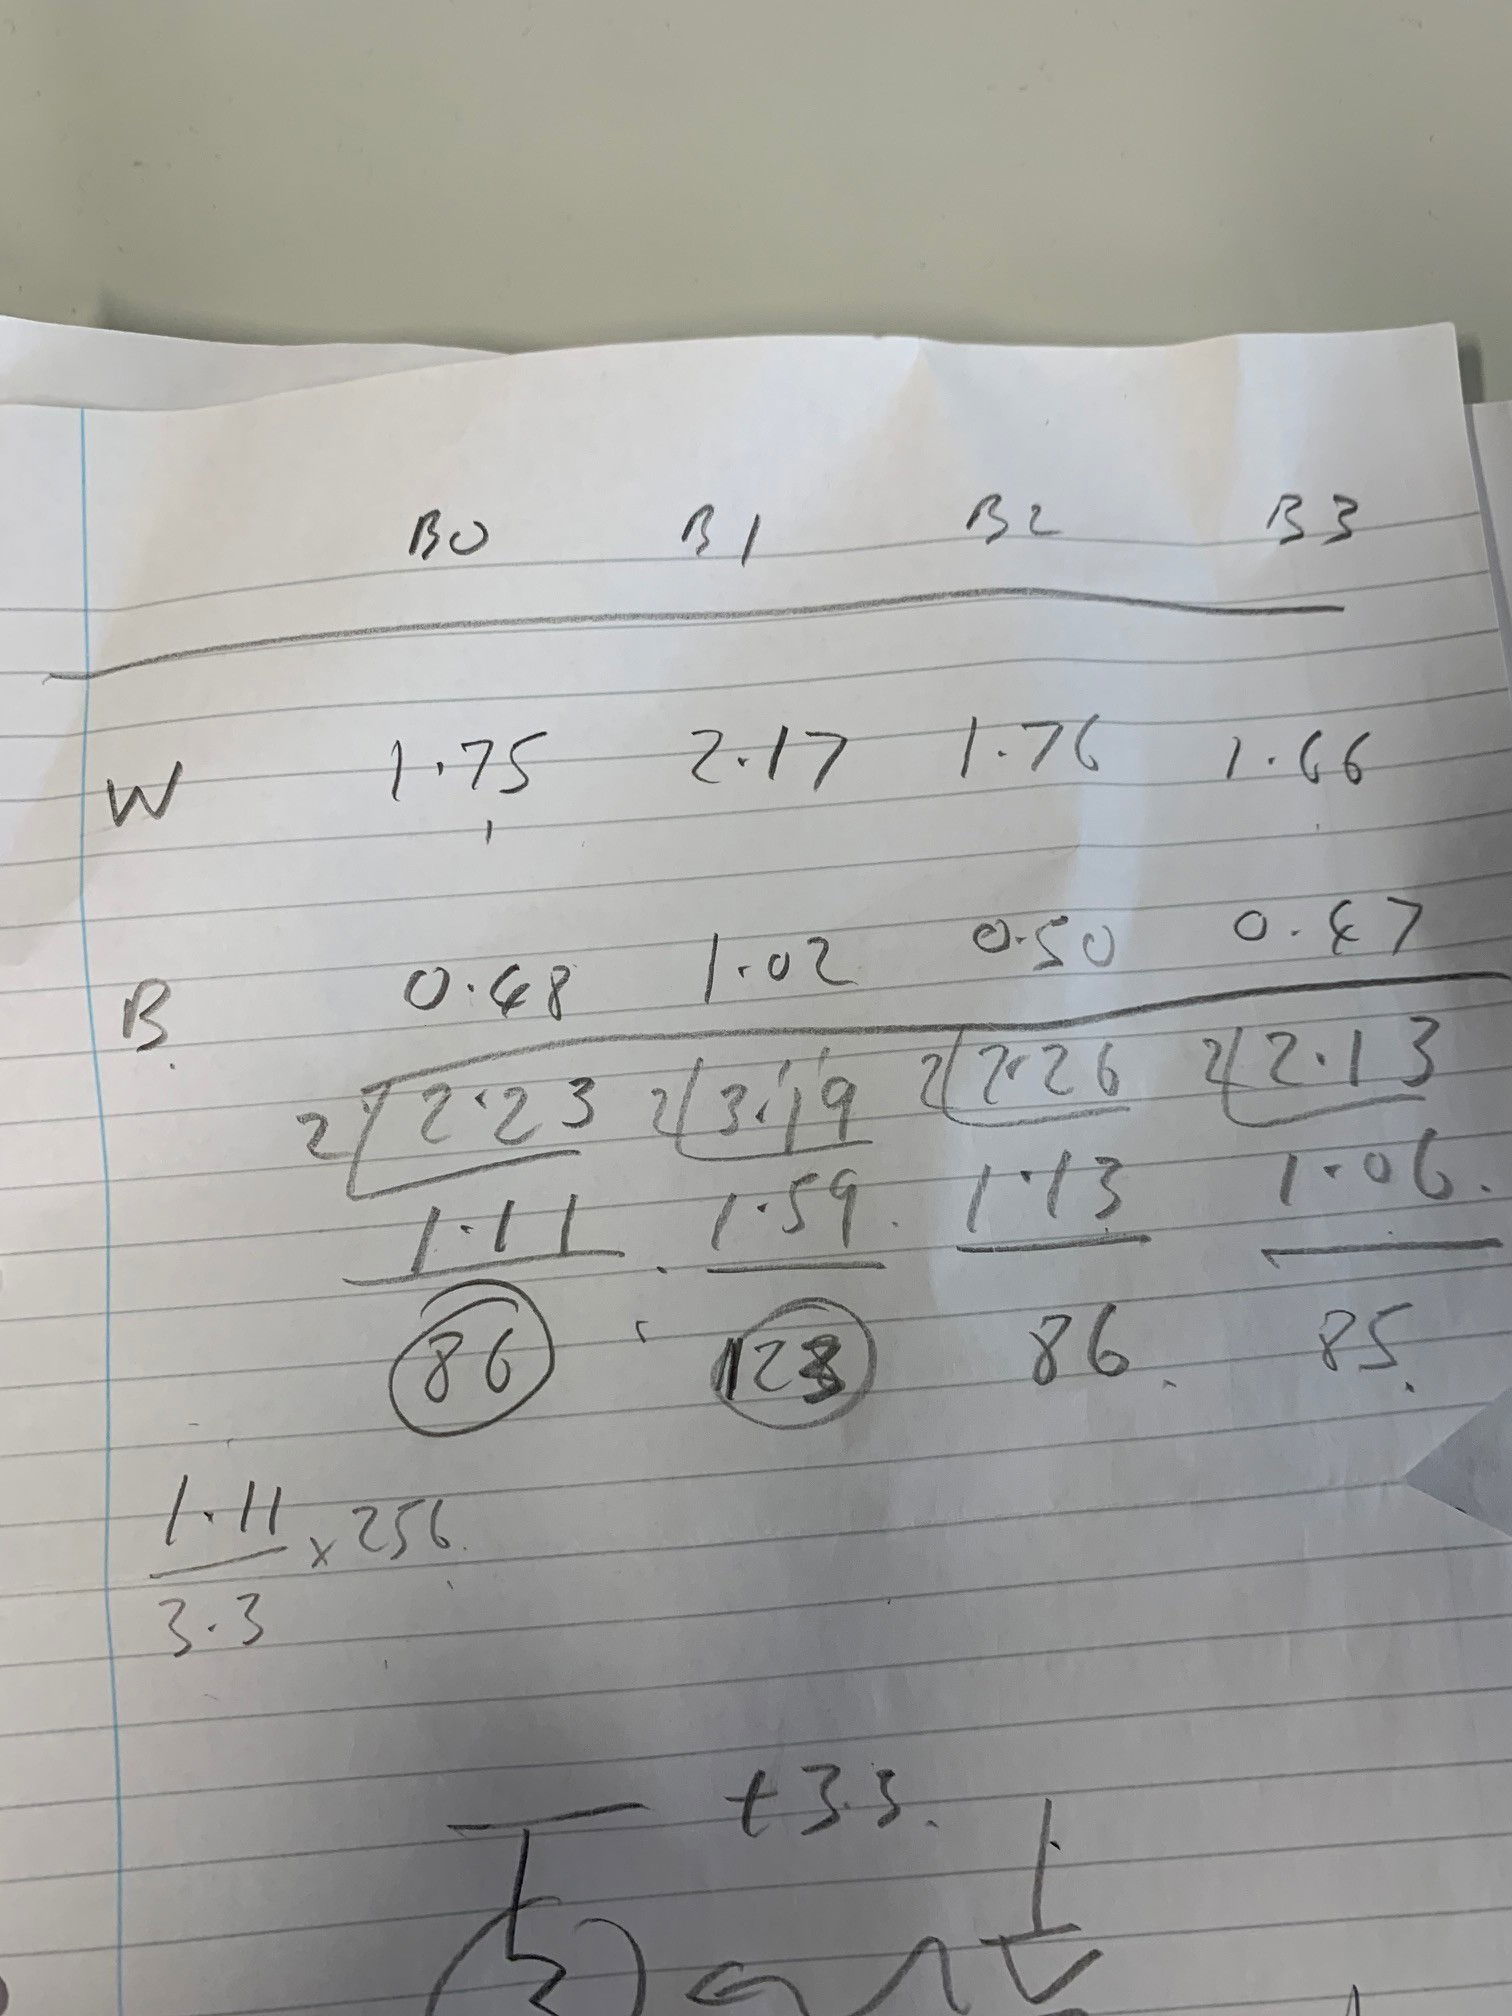 B0 B1 B2 B3
W 1.75 2.17 1.76 1.66
B 0.48 1.02 0.50 0.47
2 2.23 2 3.19 2 2.26 2 2.13
1.11 1.59 1.13 1.06.
86 123 86. 85.
1.11
x 256
3.3
+3.3.